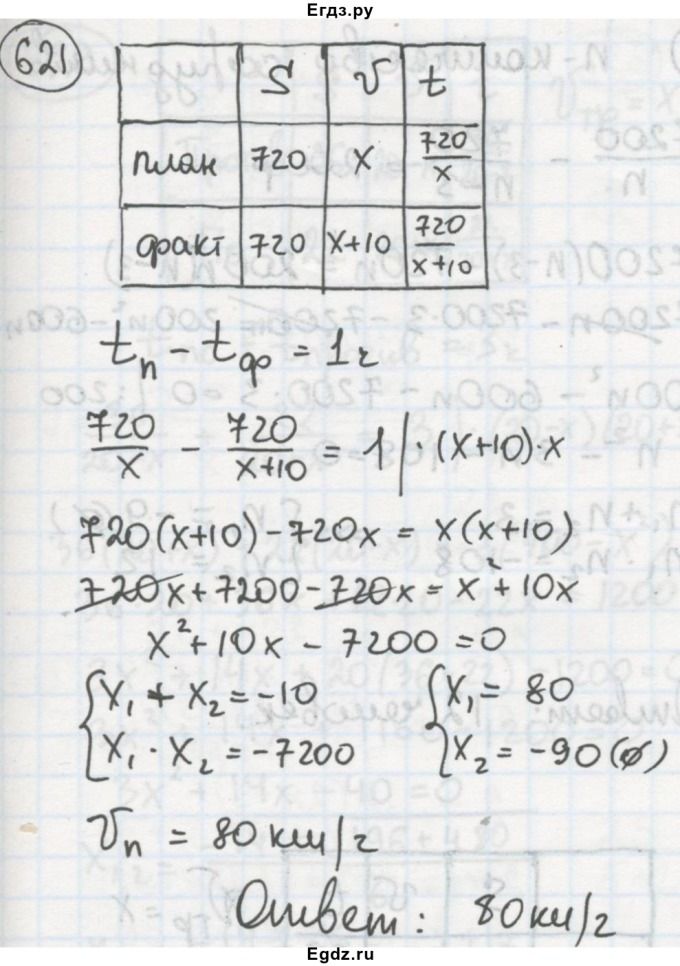 Егдз.ру
621
S V t
план 720 x 720/x
факт 720 x+10 720/(x+10)
tп - tф = 1ч
720/x - 720/(x+10) = 1 | ·(x+10)·x
720(x+10) - 720x = x(x+10)
720x + 7200 - 720x = x² + 10x
x² + 10x - 7200 = 0
{ x₁ + x₂ = -10 { x₁ = 80
{ x₁ · x₂ = -7200 { x₂ = -90 (ø)
Vп = 80 км/ч
Ответ: 80 км/ч
Egdz.ru